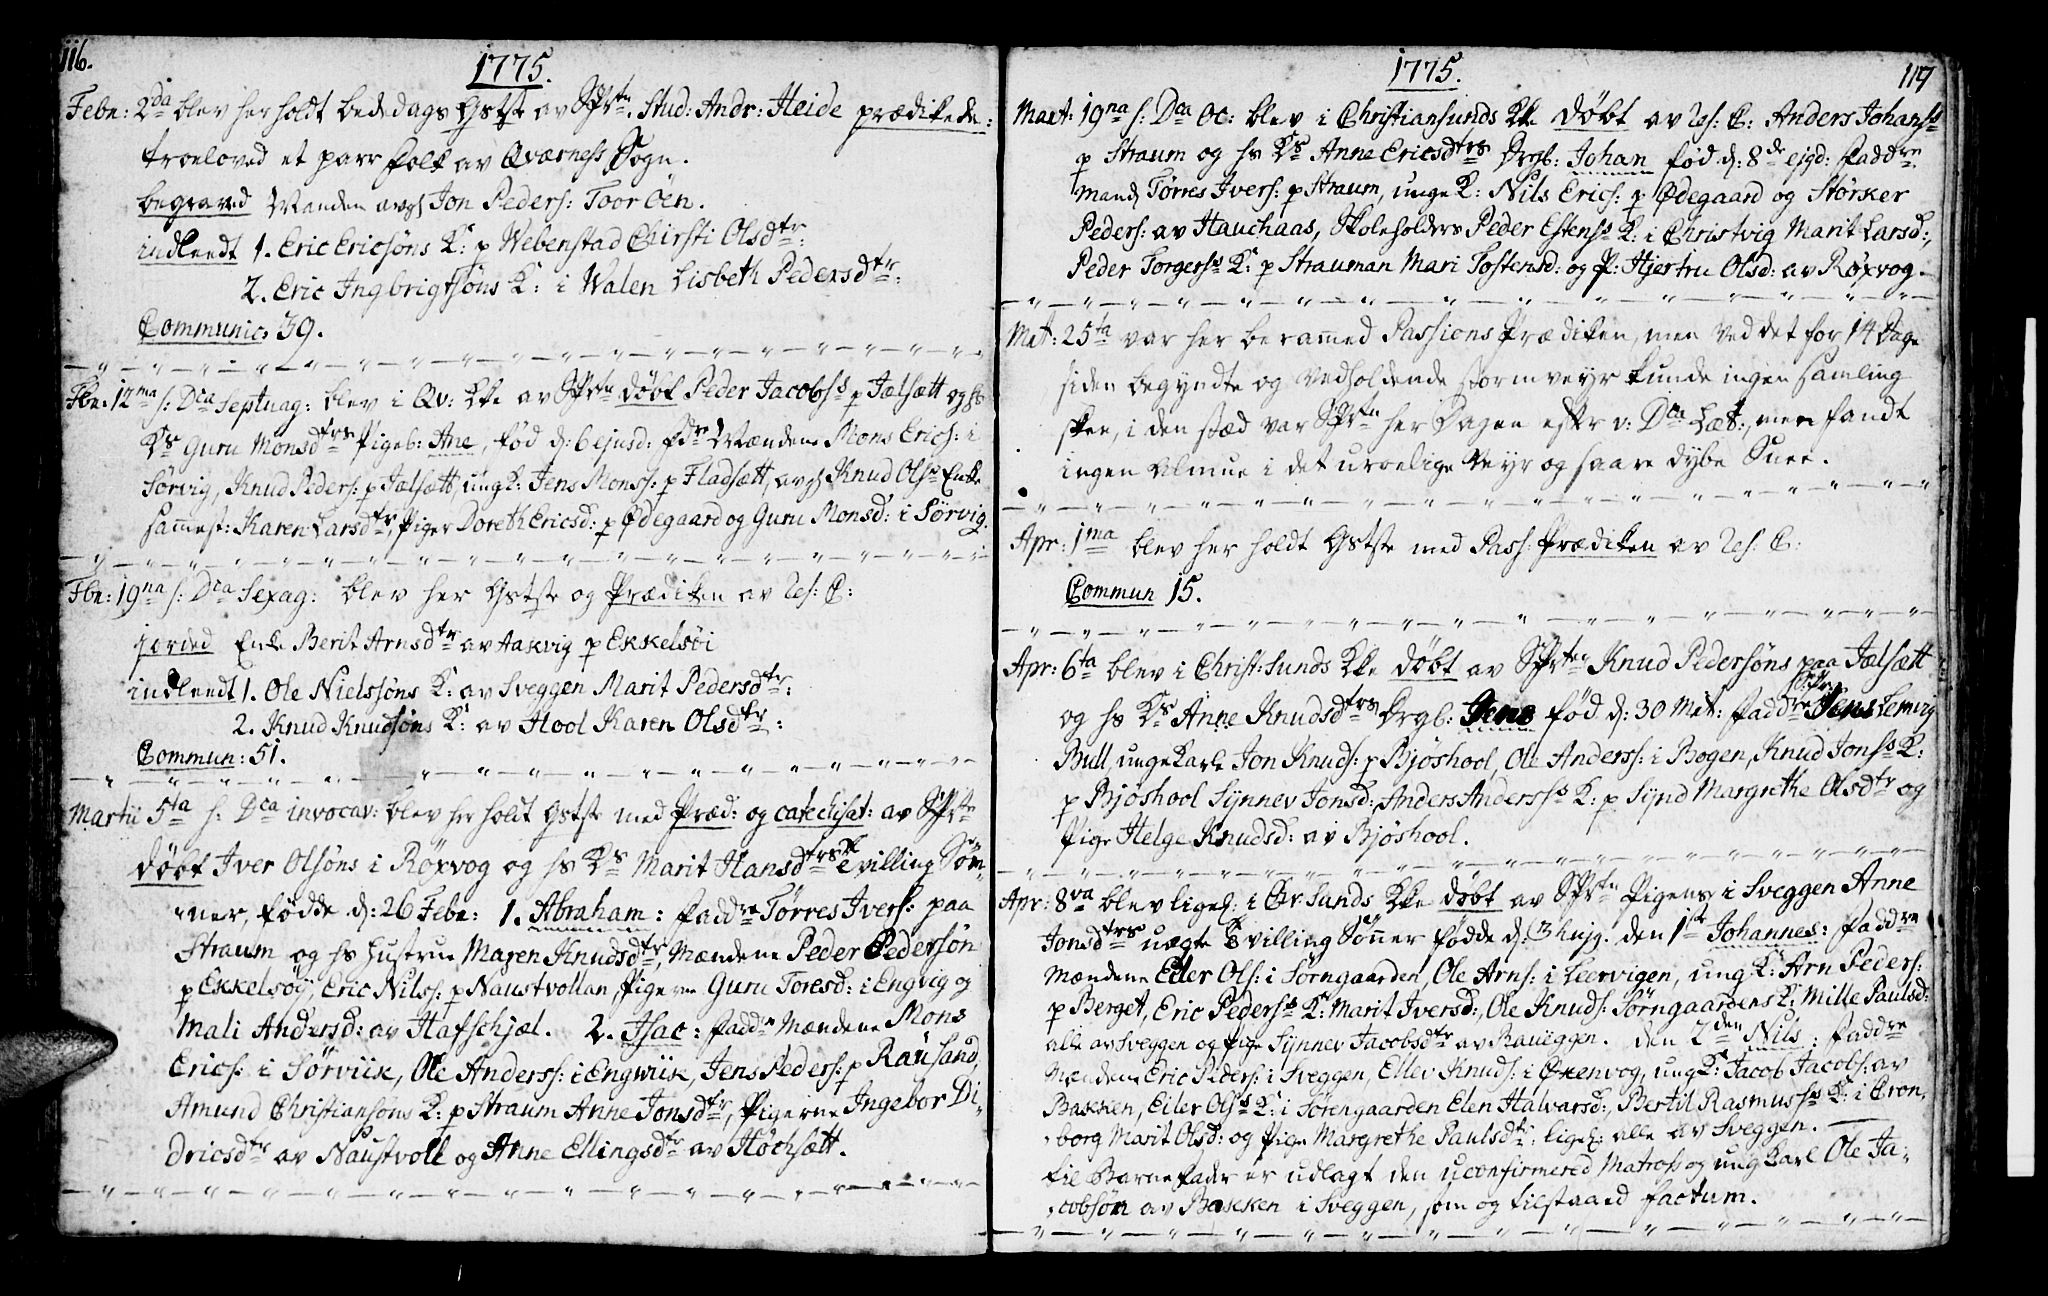 116.
1775.
Febr: 2da blev her holdt bededags Gstste av SPrtn. Stud: Andr: Heide prædikede:
troeloved et parr folk av Qværness Sogn.
begraved Manden avgl Jon Peders: Toor Öen.
indleedt 1. Eric Ericsöns K: p Webenstad Chirsti Olsdtr:
2. Eric Ingbrigtsöns K: i Walen Lisbeth Pedersdtr:
Communic: 39.
Fbr: 12ma s: Dca Septuag: blev i Qv: Kke av SPrtn döbt Peder Jacobss p Jælsætt og hs
Ks Guru Monsdtrs Pigeb: Ane, fød d: 6 ejusd: fdr Mændene Mons Erics: i
Sörvig, Knud Peders: p Jælsætt, ung K: Jens Monss: p Fladsætt, avgl Knud Olss Enke
sammest: Karen Larsdtr, Piger Doreth Ericsd: p Ødegaard og Guru Monsd: i Sörvig.
Fbr: 19na s: Dca Sexag: blev her Gstste og Prædiken av Res: C:
jorded Enke Berit Arnsdtr av Aakvig p Ekkelsöi
indleedt 1. Ole Nielssöns K: av Sveggen Marit Pedersdtr:
2. Knud Knudsöns K: av Hool Karen Olsdtr:
Commun: 51.
Martii 5ta s: Dca invocav: blev her holdt Gstste med Præd: og catechisat: av SPrtn
döbt Iver Olsöns i Röxvog og hs Ks Marit Hansdtrs tvilling Søn-
ner, fødde d: 26 Febr: 1. Abraham: faddre Törres Ivers: paa
Straum og hs hustrue Maren Knudsdtr, Mændene Peder Pedersön
p Ekkelsöy, Eric Nilss: p Naustvollan, Pigerne Guru Toresd: i Engvig og
Mali Andersd: av Hafschjæl. 2. Isac: faddre Mændene Mons
Erics: i Sörviik, Ole Anderss: i Engwiik, Jens Peders: p Rausand,
Amund Christiansöns K: p Straum Anne Jonsdtr, Pigerne Ingebor Di-
dricsdtr av Naustvoll og Anne Ellingsdtr av Höchsætt.
1775.
117
Mart: 19na s: Dca Oc: blev i Christiansunds Kke döbt av Res: C: Anders Johanss
p Straum og hs Ks Anne Ericsdtrs Drgb: Johan fød d: 8de ejgd: faddre
Mand Törres Ivers: p Straum, unge K: Nils Erics: p Ødegaard og Störker
Peders: av Hauchaas, Skoleholders Peder Estenss K: i Christvig Marit Larsd:,
Peder Torgerss K: p Strauman Mari Tostensd: og P: Hjertru Olsd: av Röxvog.
Mrt: 25ta var her berammed Passions Prædiken, men ved det for 14 Dage
siden begyndte og vedholdende stormveyr kunde ingen samling
skee, i den stæd var SPrtn her Dagen eftr v: Dca Læt:, men fandt
ingen Almue i det uroelige Veyr og saare dybe Snee.
Apr: 1ma blev her holdt Gstste med Pass: Prædiken av Res: C:
Commun 15.
Apr: 6ta blev i Christ:Sunds Kke döbt av SPrtn Knud Pedersöns paa Jælsætt
og hs Ks Anne Knudsdtrs Drgb: Jens fød d: 30 Mrt: faddre SPr: Jens Lemvig
Bull, unge Karle Jon Knuds: p Bjöshool, Ole Anderss: i Bogen, Knud Jonss K:
p Bjöshool Synnev Jonsd:, Anders Anderss K: p Synd Margrethe Olsdtr og
Pige Helge Knudsd: av Bjöshool.
Apr: 8va blev ligel: i Chr.Sunds Kke döbt av SPrtn Pigens i Sveggen Anne
Jonsdtrs uægte tvilling Sönner fødde d: 3 hujg. den 1ste Johannes: faddre
Mændene Eiler Ols: i Sörngaarden, Ole Arns: i Leervigen, ung K: Arn Peders:
p Berget, Eric Pederss K: Marit Iversd:, Ole Knuds: Sörngaardens K: Mille Paulsd:
alle av Sveggen og Pige Synnev Jacobsdtr av Raueggen. den 2den Nils: faddre
Mændene Eric Peders: i Sveggen, Ellev Knuds: i Ørenvog, ung K: Jacob Jacobs: av
Bakken, Eiler Olss K: i Sörengaarden Elen Halvarsd:, Bertil Rasmuss K: i Cron-
borg Marit Olsd: og Pige Margrethe Paulsdtr: ligel: alle av Sveggen.
til Barnefader er udlagt den uconfirmered Matros og ung Karl Ole Ja-
cobsön av Bakken i Sveggen, som og tilstaaed factum.